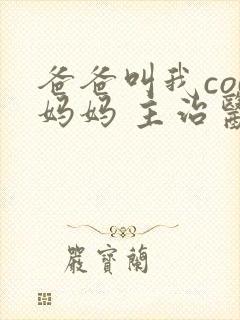 爸爸叫我co
妈妈 主治醫
嚴寶蘭